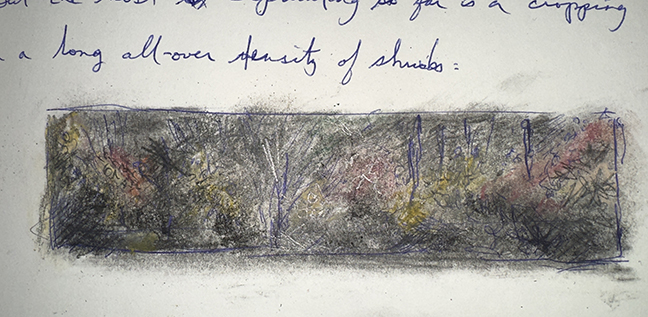 most so far is a cropping
a long all-over density of shrubs: